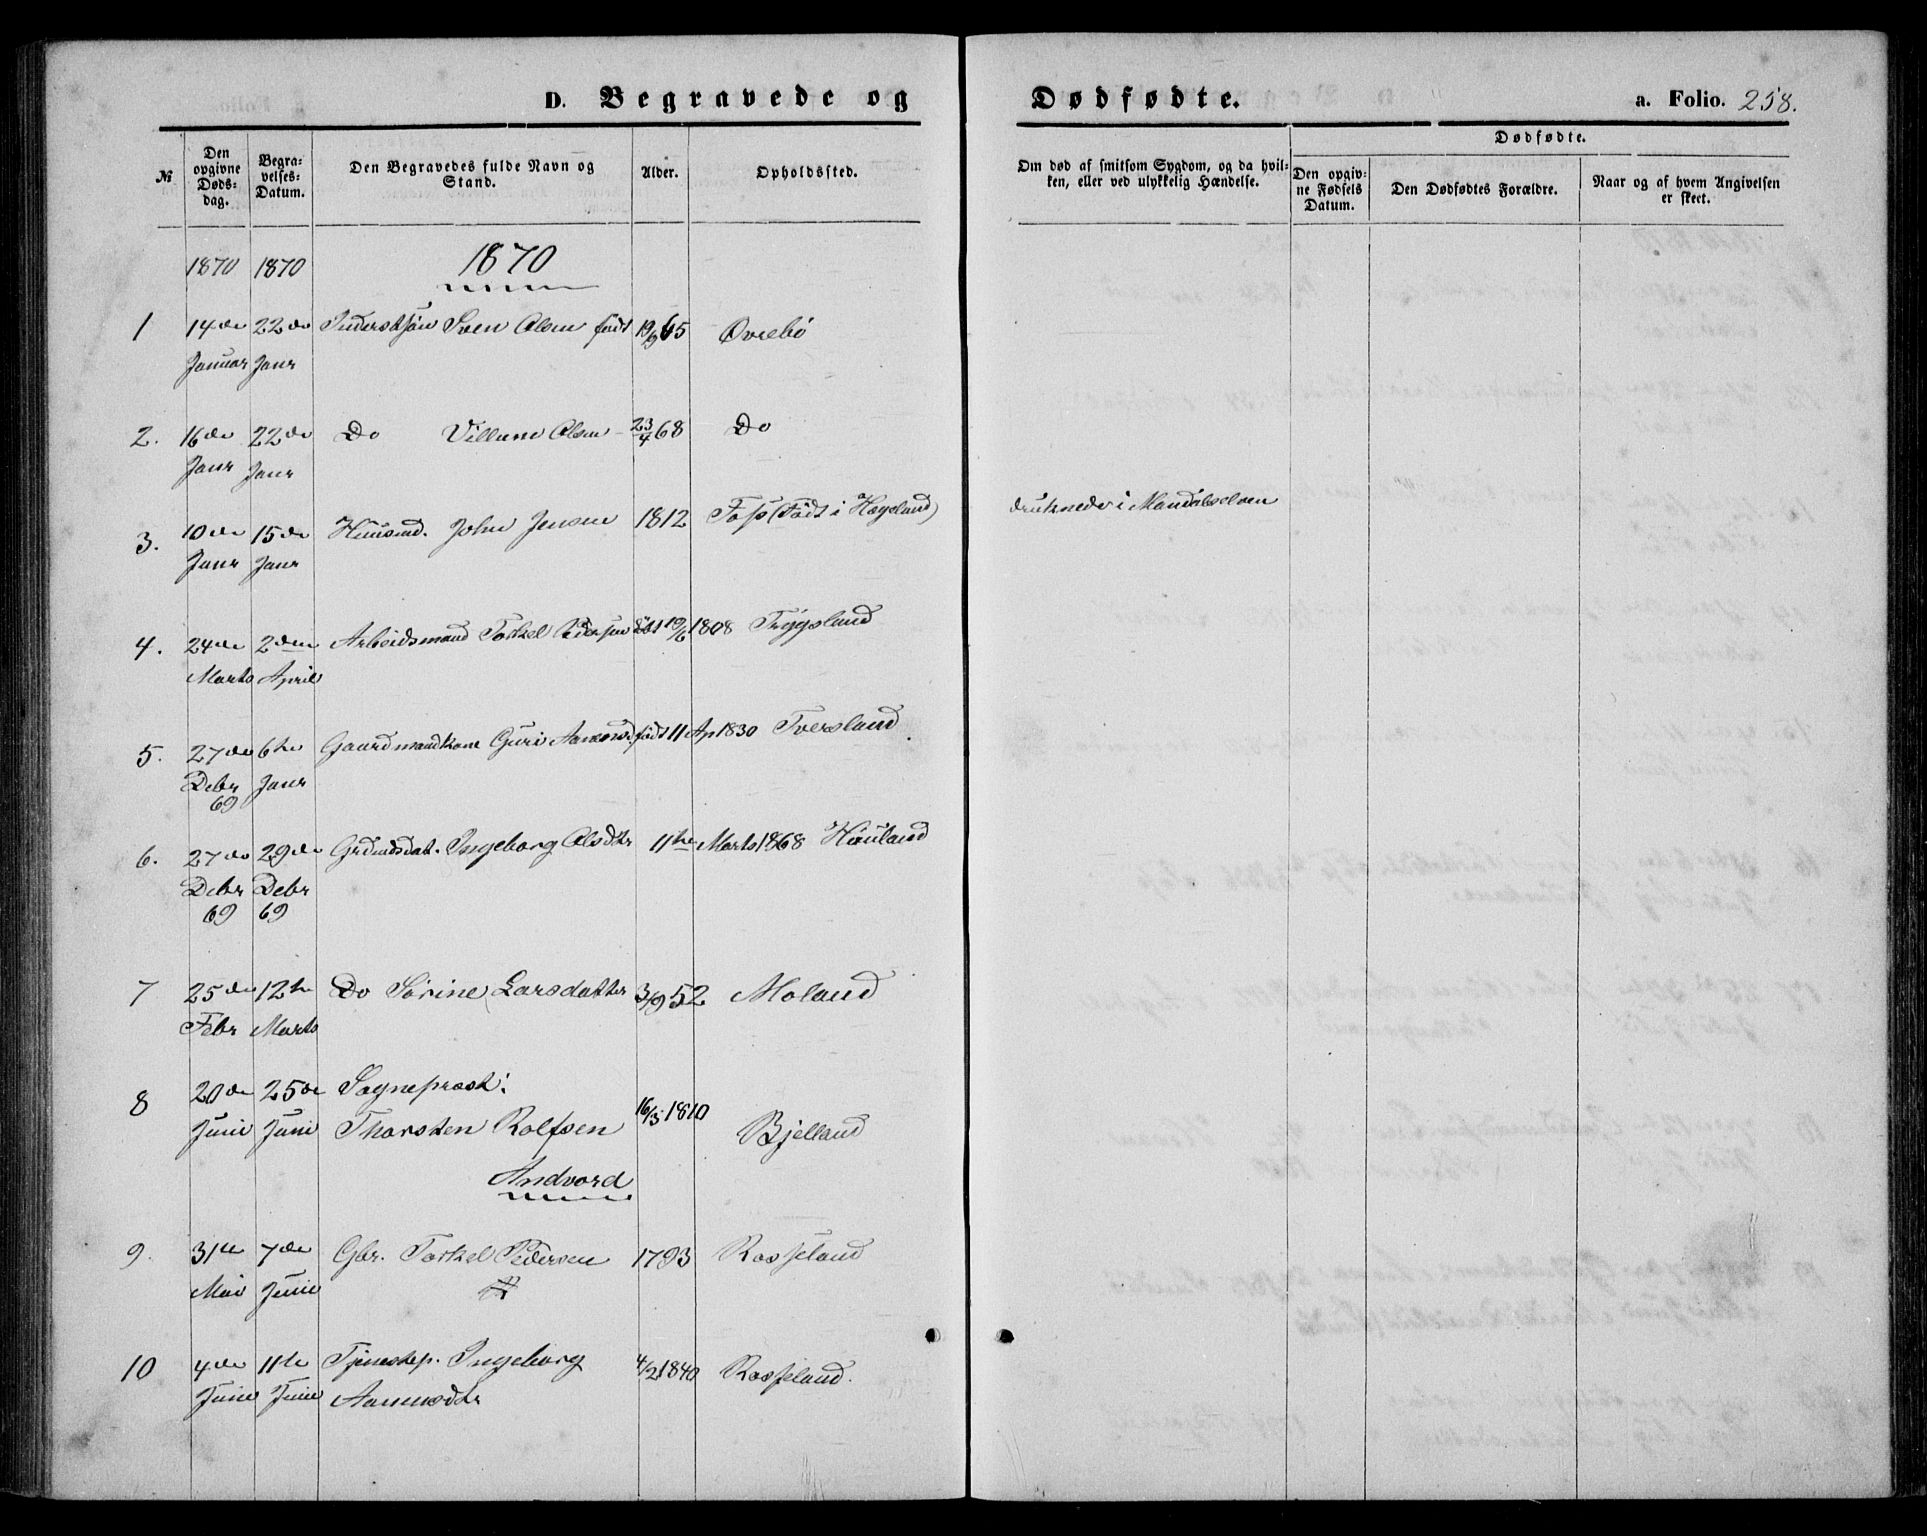 D. Begravede og Dødfødte. a. Folio. 258.
№ Den opgivne Døds-dag. Begra-velses-Datum. Den Begravedes fulde Navn og Stand. Alder. Opholdssted. Om død af smitsom Sygdom, og da hvil-ken, eller ved ulykkelig Hændelse. Dødfødte. Den opgiv-ne Fødsels Datum. Den Dødfødtes Forældre. Naar og af hvem Angivelsen er skeet.
1870 1870 1870
1 14de 22de Inderstsøn Sven Olsen født 19/9 65 Øvrebø
Januar Janr
2. 16de 22de Do Villum Olsen 23/4 68 Do
Janr Janr
3. 10de 15de Huusmd. John Jensen 1812 Foss (Født i Hægeland) druknede i Mandalselven
Janr Janr
4. 24de 2den Arbeidsmand Torkel Pedersen født 19/6 1808 Trygsland
Marts April
5. 27de 6te Gaardmandkone Guri Aanensd. født 11 Ap 1830 Tversland
Debr Janr
69
6. 27de 29de Grdmdsdat. Ingeborg Olsdtr 11te Marts 1868 Hauland
Debr Debr
69 69
7 25de 12te Do Sørine Larsdatter 3/9 52 Moland
Febr Marts
8 20de 25de Sognepræst:
Juni Juni Thorsten Rolfsen 16/3 1810 Bjelland
Andvord
9. 31te 7de Gbr. Torkel Pedersen 1793 Rosseland
Mai Juni
10 4de 11te Tjenestep. Ingeborg 4/2 1840 Rosseland.
Juni Juni Aanensdtr